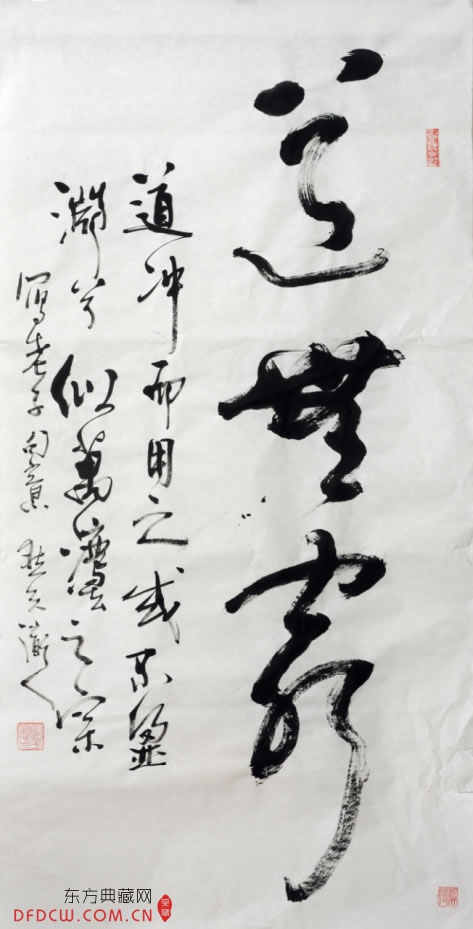 道無窮
道沖而用之或不盈
淵兮似萬之
寫老子句意
东方典藏网
DFDCW.COM.CN